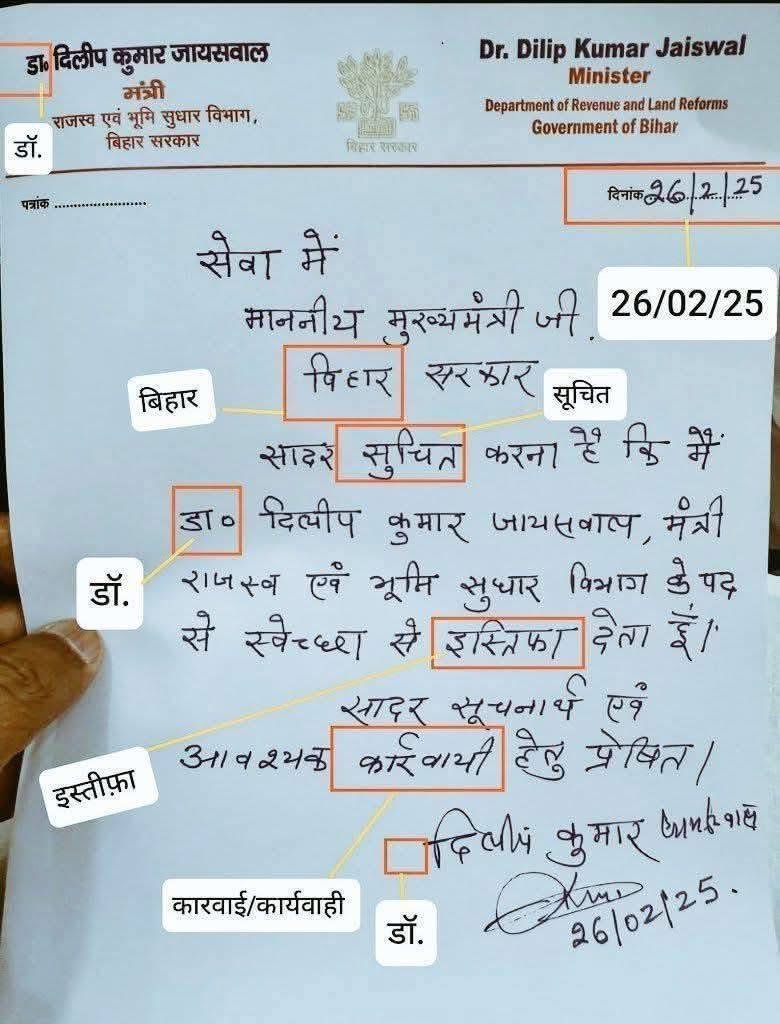 डा० दिलीप कुमार जायसवाल
मंत्री
राजस्व एवं भूमि सुधार विभाग,
बिहार सरकार
डॉ.
बिहार सरकार
Dr. Dilip Kumar Jaiswal
Minister
Department of Revenue and Land Reforms
Government of Bihar
पत्रांक .......................
दिनांक 26/2/25
26/02/25
सेवा में
माननीय मुख्यमंत्री जी.
बिहार
विहार सरकार
सूचित
सादर सुचित करना है कि मैं
डा० दिलीप कुमार जायसवाल, मंत्री
डॉ.
राजस्व एवं भूमि सुधार विभाग के पद
से स्वेच्छा से इस्तिफा देता हूँ।
सादर सूचनार्थ एवं
आवश्यक कार्रवायी हेतु प्रेषित।
इस्तीफ़ा
दिलीप कुमार
कारवाई/कार्यवाही
डॉ.
26/02/25.